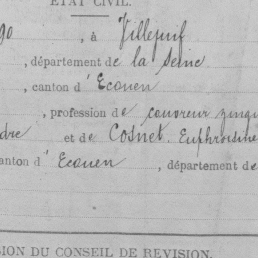 ÉTAT CIVIL.
90 , à Villejuif
, département de la Seine
, canton d'Ecouen
, profession de couvreur zingu
dre et de Cosnet, Euphrosine
canton d'Ecouen , département de
SION DU CONSEIL DE REVISION.